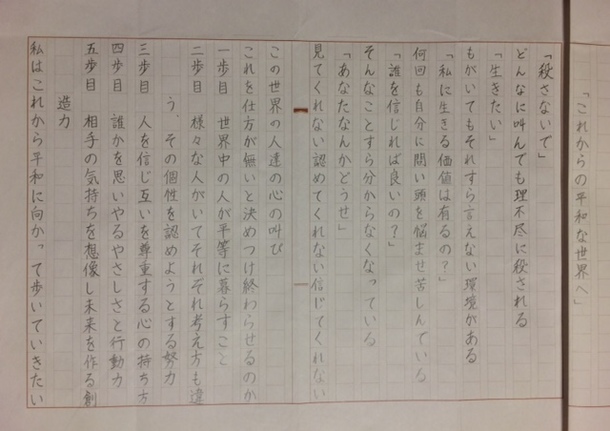 「これからの平和な世界へ」
「殺さないで」
どんなに叫んでも理不尽に殺される
「生きたい」
もがいてもそれすら言えない環境がある
「私に生きる価値は有るの？」
何回も自分に問い頭を悩ませ苦しんでいる
「誰を信じれば良いの？」
そんなことすら分からなくなっている
「あなたなんかどうせ」
見てくれない認めてくれない信じてくれない
この世界の人達の心の叫び
これを仕方が無いと決めつけ終わらせるのか
一歩目　世界中の人が平等に暮らすこと
二歩目　様々な人がいてそれぞれ考え方も違
う、その個性を認めようとする努力
三歩目　人を信じ互いを尊重する心の持ち方
四歩目　誰かを思いやるやさしさと行動力
五歩目　相手の気持ちを想像し未来を作る創
造力
私はこれから平和に向かって歩いていきたい